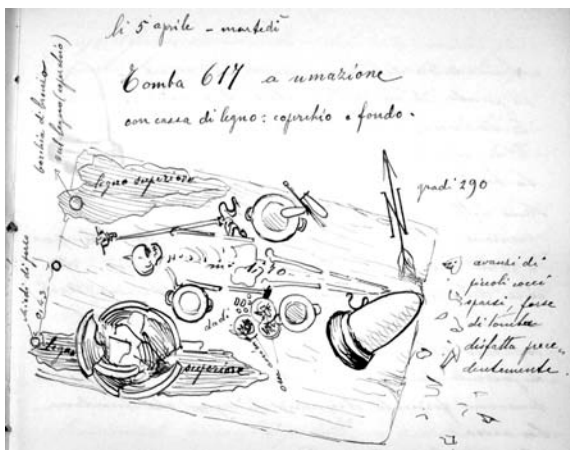 li 5 aprile - martedì
Tomba 617 a umazione
con cassa di legno: coperchio e fondo.
borchia di bronzo
sul legno (coperchio)
legno superiore
gradi 290
N
m: 1,70
chiodi di ferro
0,43
dadi
legno
superiore
avanzi di
piccoli cocci
sparsi, forse
di tomba
disfatta prece=
dentemente.